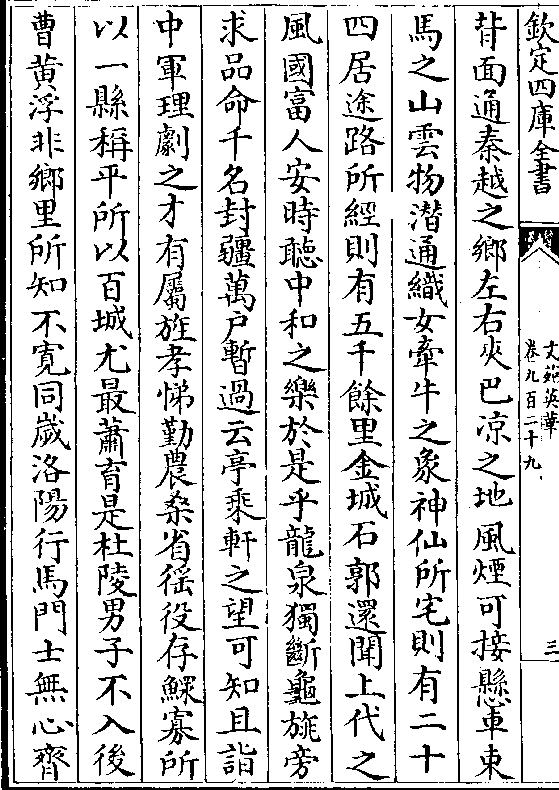 欽定四庫全書
文苑英華
卷九百二十九
三
背面通秦越之鄉左右夾巴凉之地風煙可接懸車束
馬之山雲物潛通織女牽牛之象神仙所宅則有二十
四居途路所經則有五千餘里金城石郭還聞上代之
風國富人安時聽中和之樂於是乎龍泉獨斷龜旐旁
求品命千名封疆萬戶暫過云亭乘軒之望可知且詣
中軍理劇之才有屬旌孝悌勤農桑省徭役存鰥寡所
以一縣稱平所以百城尤最蕭育是杜陵男子不入後
曹黃浮非鄉里所知不寬同歲洛陽行馬門士無心齊